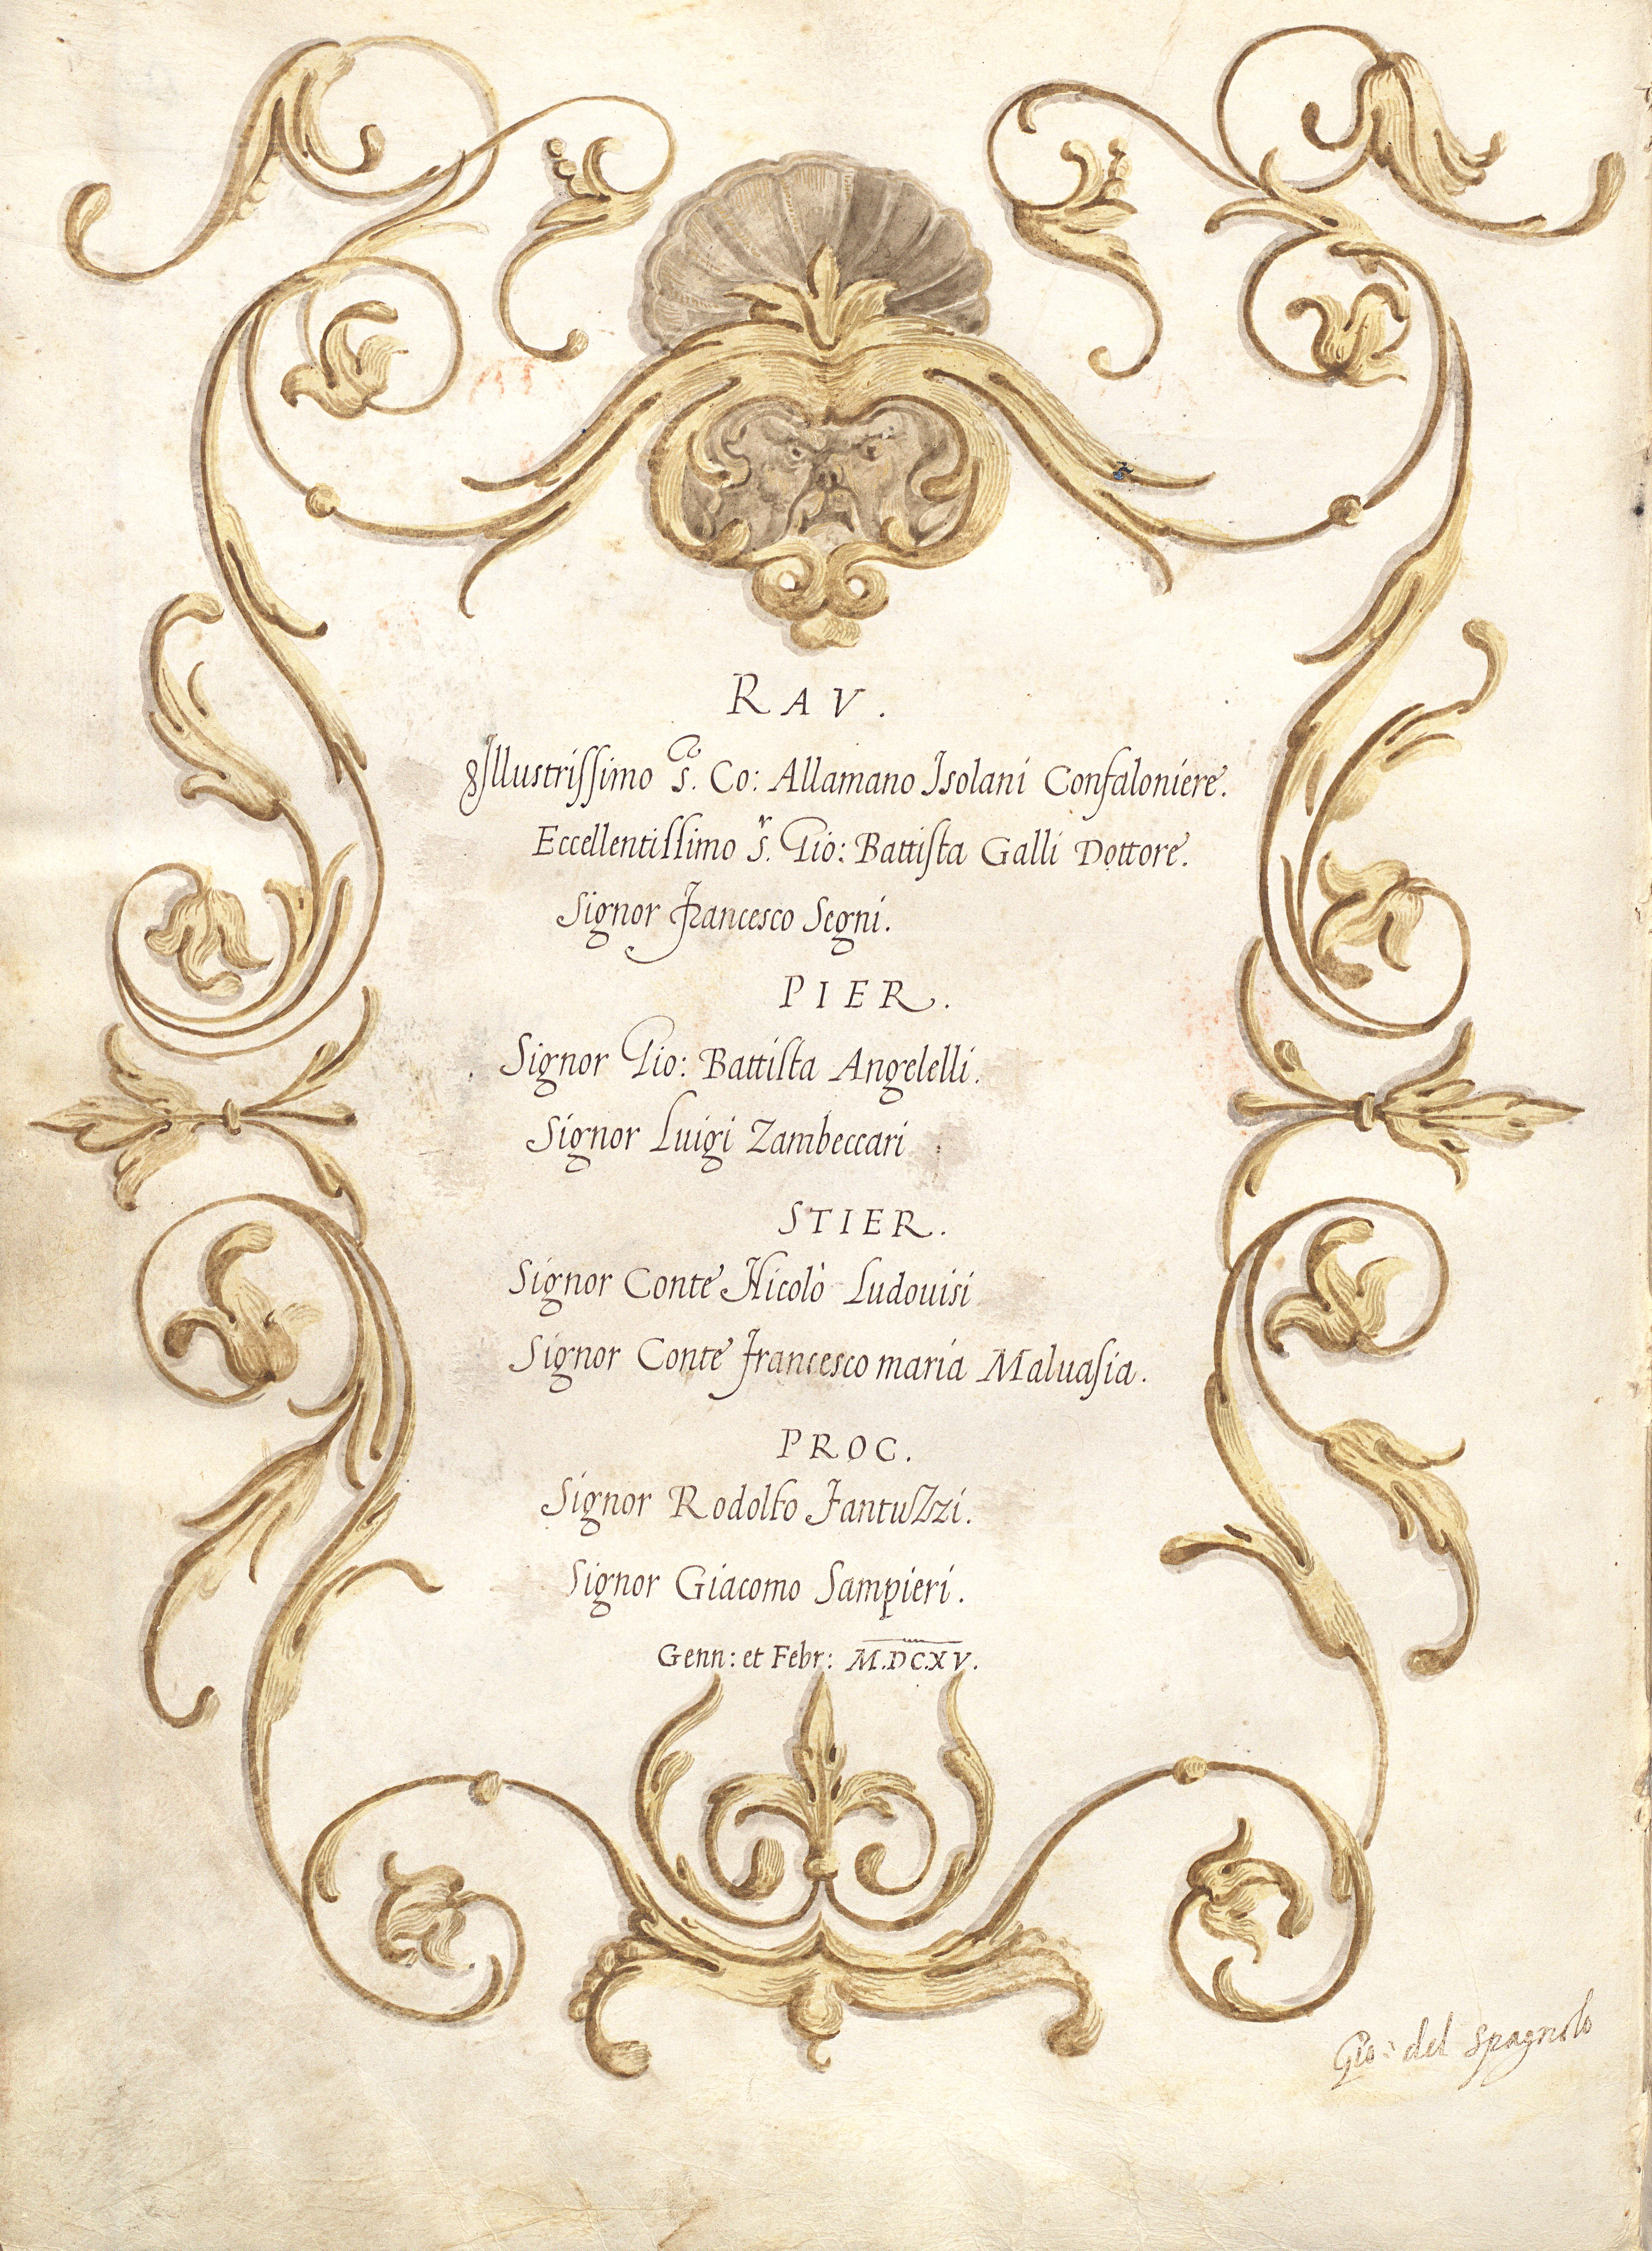 RAV.
Illustrissimo S.r Co: Allamano Isolani Confaloniere.
Eccellentissimo S.r Gio: Battista Galli Dottore.
Signor Francesco Segni.
PIER.
Signor Gio: Battista Angelelli.
Signor Luigi Zambeccari
STIER.
Signor Conte Nicolò Ludouisi
Signor Conte Francesco maria Maluasia.
PROC.
Signor Rodolfo Fantuzzi.
Signor Giacomo Sampieri.
Genn: et Febr: M.DC.XV.
Gio: del Spagnolo